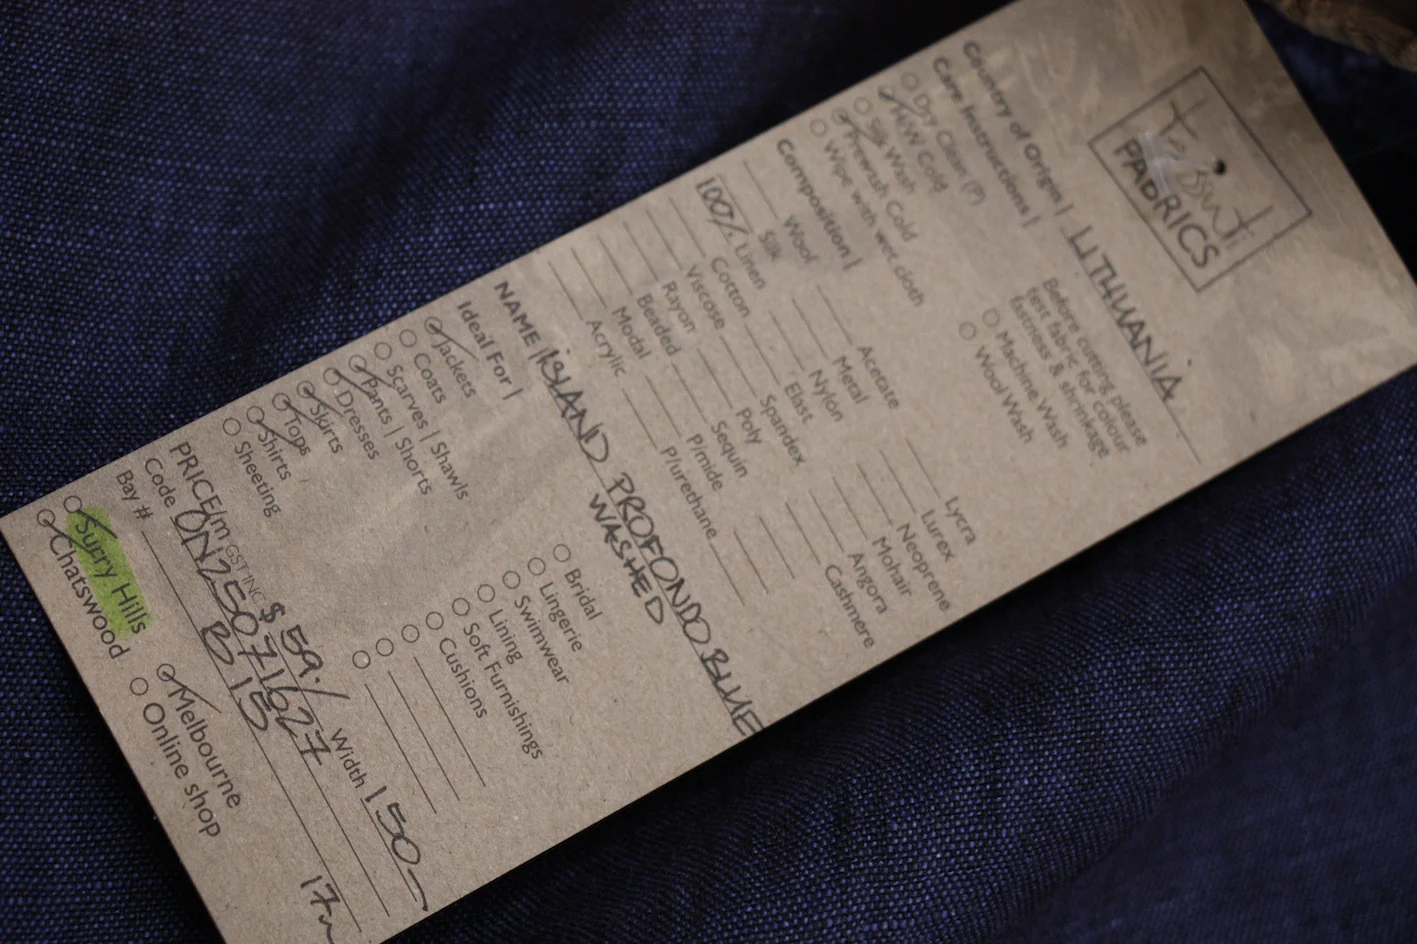 tessuti
FABRICS
Country of Origin | LITHUANIA
Care Instructions |
Before cutting please
test fabric for colour
fastness & shrinkage
Dry Clean (P)
HW Cold
Silk Wash
Prewash Cold
Wipe with wet cloth
Machine Wash
Wool Wash
Composition |
Wool
Silk
100% Linen
Cotton
Viscose
Rayon
Beaded
Modal
Acrylic
Acetate
Metal
Nylon
Elast
Spandex
Poly
Sequin
P/mide
P/urethane
Lycra
Lurex
Neoprene
Mohair
Angora
Cashmere
NAME | ISLAND PROFONDO BLUE
WASHED
Ideal For |
Jackets
Coats
Scarves | Shawls
Pants | Shorts
Dresses
Skirts
Tops
Shirts
Sheeting
Bridal
Lingerie
Swimwear
Lining
Soft Furnishings
Cushions
PRICE/m GST INC $ 59./ Width 150
Code ON25071627
Bay # B 15
17m
Surry Hills
Chatswood
Melbourne
Online shop